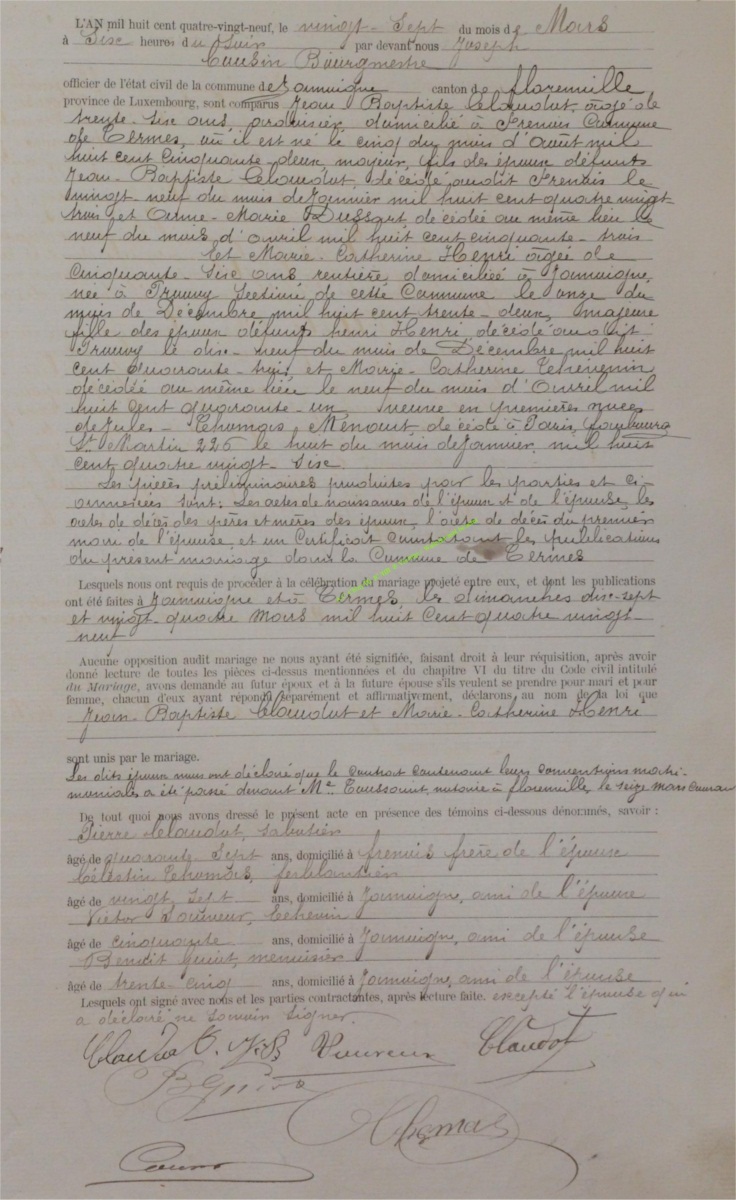 L'AN mil huit cent quatre-vingt-neuf, le vingt-Sept du mois de Mars
à Sise heures du Soir par devant nous Joseph
Cousin Bourgmestre
officier de l'état civil de la commune de Jamoigne canton de florenville,
province de Luxembourg, sont comparus Jean Baptiste Claudot, âgé de
trente-Sise ans, domicilié à Frenois Commune
de Termes, où il est né le cinq du mois d'Août mil
huit cent Cinquante-deux, majeur, fils des époux défunts
Jean-Baptiste Claudot, décédé audit Frenois le
vingt-neuf du mois de Janvier mil huit cent quatre vingt-
trois et Anne-Marie Dussart décédée au même lieu le
neuf du mois d'Avril mil huit cent cinquante-trois
Et Marie-Catherine Henri âgée de
Cinquante-Sise ans rentière domiciliée à Jamoigne,
née à Prouvy Section de cette Commune le onze du
mois de Décembre mil huit cent trente-deux, majeure
fille des époux défunts henri Henri décédé audit
Prouvy le dise-neuf du mois de Décembre mil huit
cent quarante-trois et Marie-Catherine Thévenin
décédée au même lieu le neuf du mois d'Avril mil
huit Cent quarante-un, veuve en premières noces
de Jules-Thomas Ménout décédé à Paris, faubourg
St Martin 226 le huit du mois de Janvier mil huit
cent quatre vingt-Sise.
Les pièces préliminaires produites par les parties et ci-
annexées sont: Les actes de naissances de l'époux et de l'épouse, les
actes de décès des pères et mères des époux, l'acte de décès du premier
mari de l'épouse, et un Certificat constatant les publications
du présent mariage dans la Commune de Termes
Lesquels nous ont requis de procéder à la célébration du mariage projeté entre eux, et dont les publications
ont été faites à Jamoigne et à Termes, les dimanches dise-sept
et vingt-quatre Mars mil huit Cent quatre vingt-
neuf
Aucune opposition audit mariage ne nous ayant été signifiée, faisant droit à leur réquisition, après avoir
donné lecture de toutes les pièces ci-dessus mentionnées et du chapitre VI du titre du Code civil intitulé
du Mariage, avons demandé au futur époux et à la future épouse s'ils veulent se prendre pour mari et pour
femme, chacun d'eux ayant répondu séparément et affirmativement, déclarons au nom de la loi que
Jean-Baptiste Claudot et Marie-Catherine Henri
sont unis par le mariage.
Les dits époux nous ont déclaré que le contrat contenant leurs conventions matri-
moniales a été passé devant Me Toussaint, notaire à florenville, le seize mars courant
De tout quoi nous avons dressé le présent acte en présence des témoins ci-dessous dénommés, savoir :
Pierre Claudot, Sabotier
âgé de quarante Sept ans, domicilié à frenois frère de l'époux
Célestin Thomas, ferblantier
âgé de vingt Sept ans, domicilié à Jamoigne, ami de l'époux
Victor
âgé de cinquante ans, domicilié à Jamoigne, ami de l'épouse
Benoit menuisier
âgé de trente-cinq ans, domicilié à Jamoigne, ami de l'épouse
Lesquels ont signé avec nous et les parties contractantes, après lecture faite. excepté l'épouse qui
a déclaré ne Savoir Signer.
Claudot Claudot
Thomas